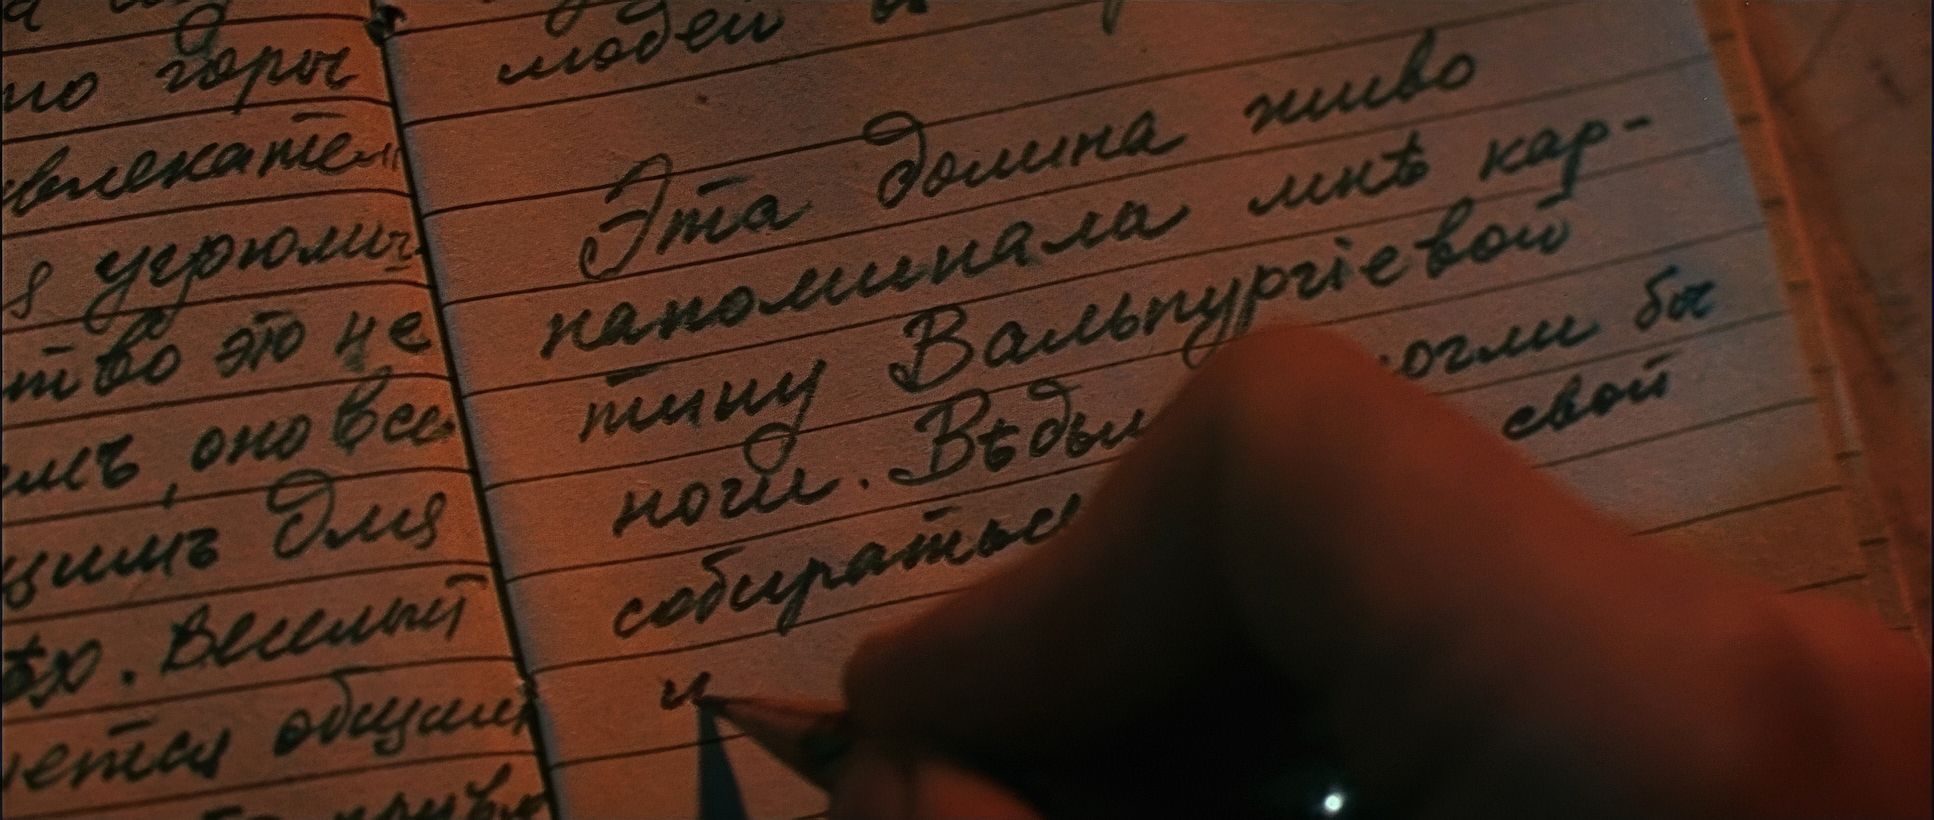 то горы
влекател
я угрюмы
тво это не
емъ, оно все
щимъ для
ѣхо. Веселый
яется общим
людей и
Эта долина живо
напоминала мнѣ кар-
тину Вальпургіевой
ночи. Вѣдьм могли бы
собираться свой
и